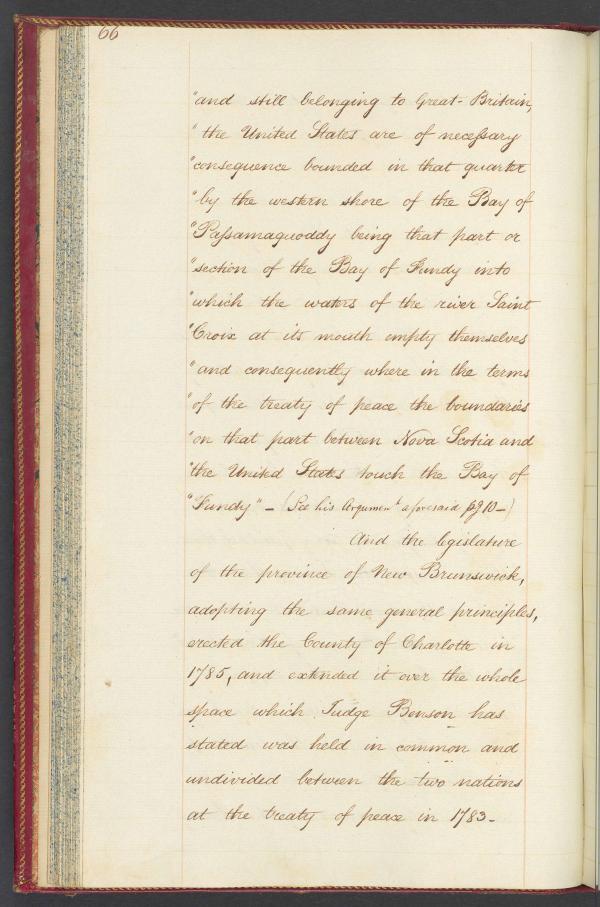 66
"and still belonging to Great-Britain,
"the United States are of necessary
"consequence bounded in that quarter
"by the western shore of the Bay of
"Passamaquoddy being that part or
"section of the Bay of Fundy into
"which the waters of the river Saint
"Croix at its mouth empty themselves
"and consequently where in the terms
"of the treaty of peace the boundaries
"on that part between Nova Scotia and
"the United States touch the Bay of
"Fundy" - (See his Argumen^t aforesaid pg 10 -)
And the legislature
of the province of New Brunswick,
adopting the same general principles,
erected the County of Charlotte in
1785, and extended it over the whole
space which Judge Benson has
stated was held in common and
undivided between the two nations
at the treaty of peace in 1783 -